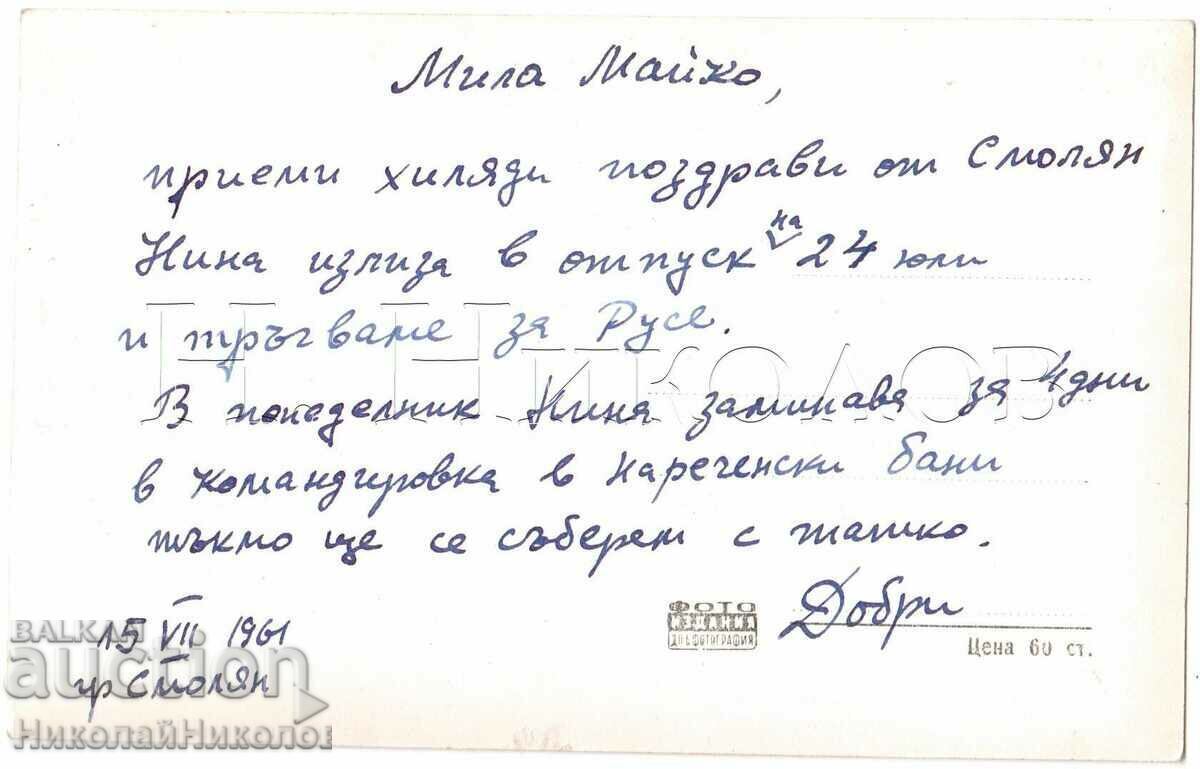 Мила Майко,
приеми хиляди поздрави от Смолян
Нина излиза в отпуск на 24 юли
и тръгваме за Русе.
Н. Николов
В понеделник Нина заминава за 4 дни
в командировка в Нареченски бани
тъкмо ще се съберем с татко.
Добри
ФОТО
ИЗДАНИЯ
ДП„ФОТОГРАФИЯ
Цена 60 ст.
15 VII 1961
гр Смолян
BALKAN
auction
НиколайНиколов